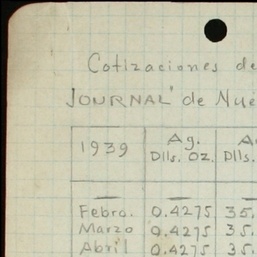 Cotizaciones de
JOURNAL" de Nue
1939 Ag. A
Dlls. Oz. Dlls.
Febro. 0.4275 35.
Marzo 0.4275 35.
Abril 0.4275 35.